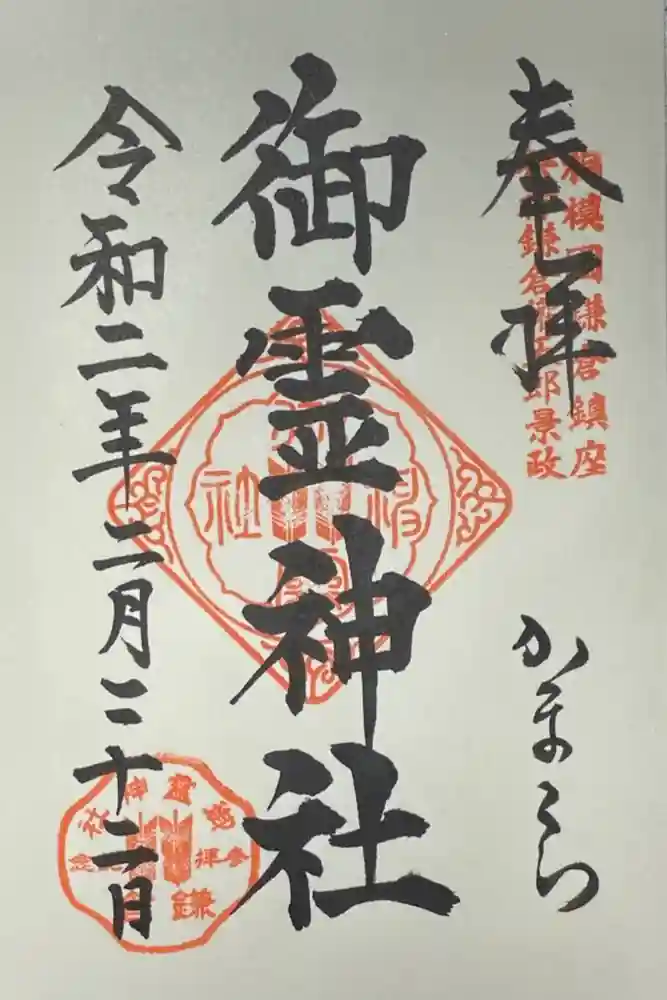 奉拝
相模国鎌倉鎮座
鎌倉権五郎景政
かまくら
御霊神社
令和二年二月二十二日
神
社
御靈神社
参拝
鎌倉